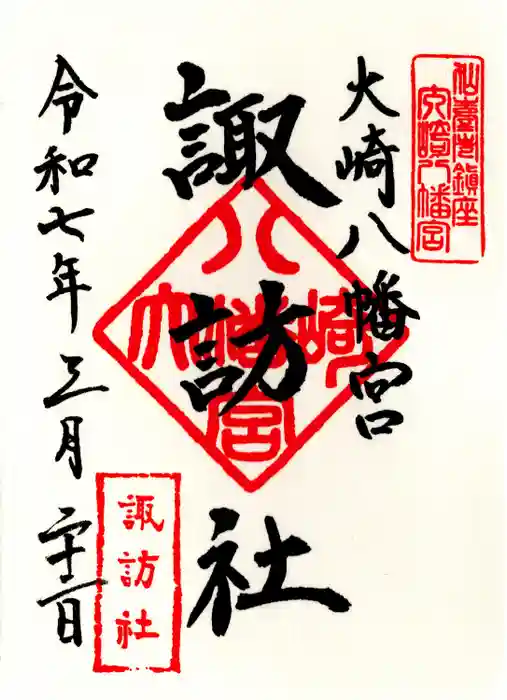 仙臺鎮座
大崎八幡宮
大崎八幡宮
諏訪社
大崎八幡宮
令和七年三月二十二日
諏訪社